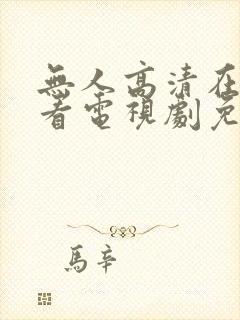 無人高清在
看電視劇免
馬辛